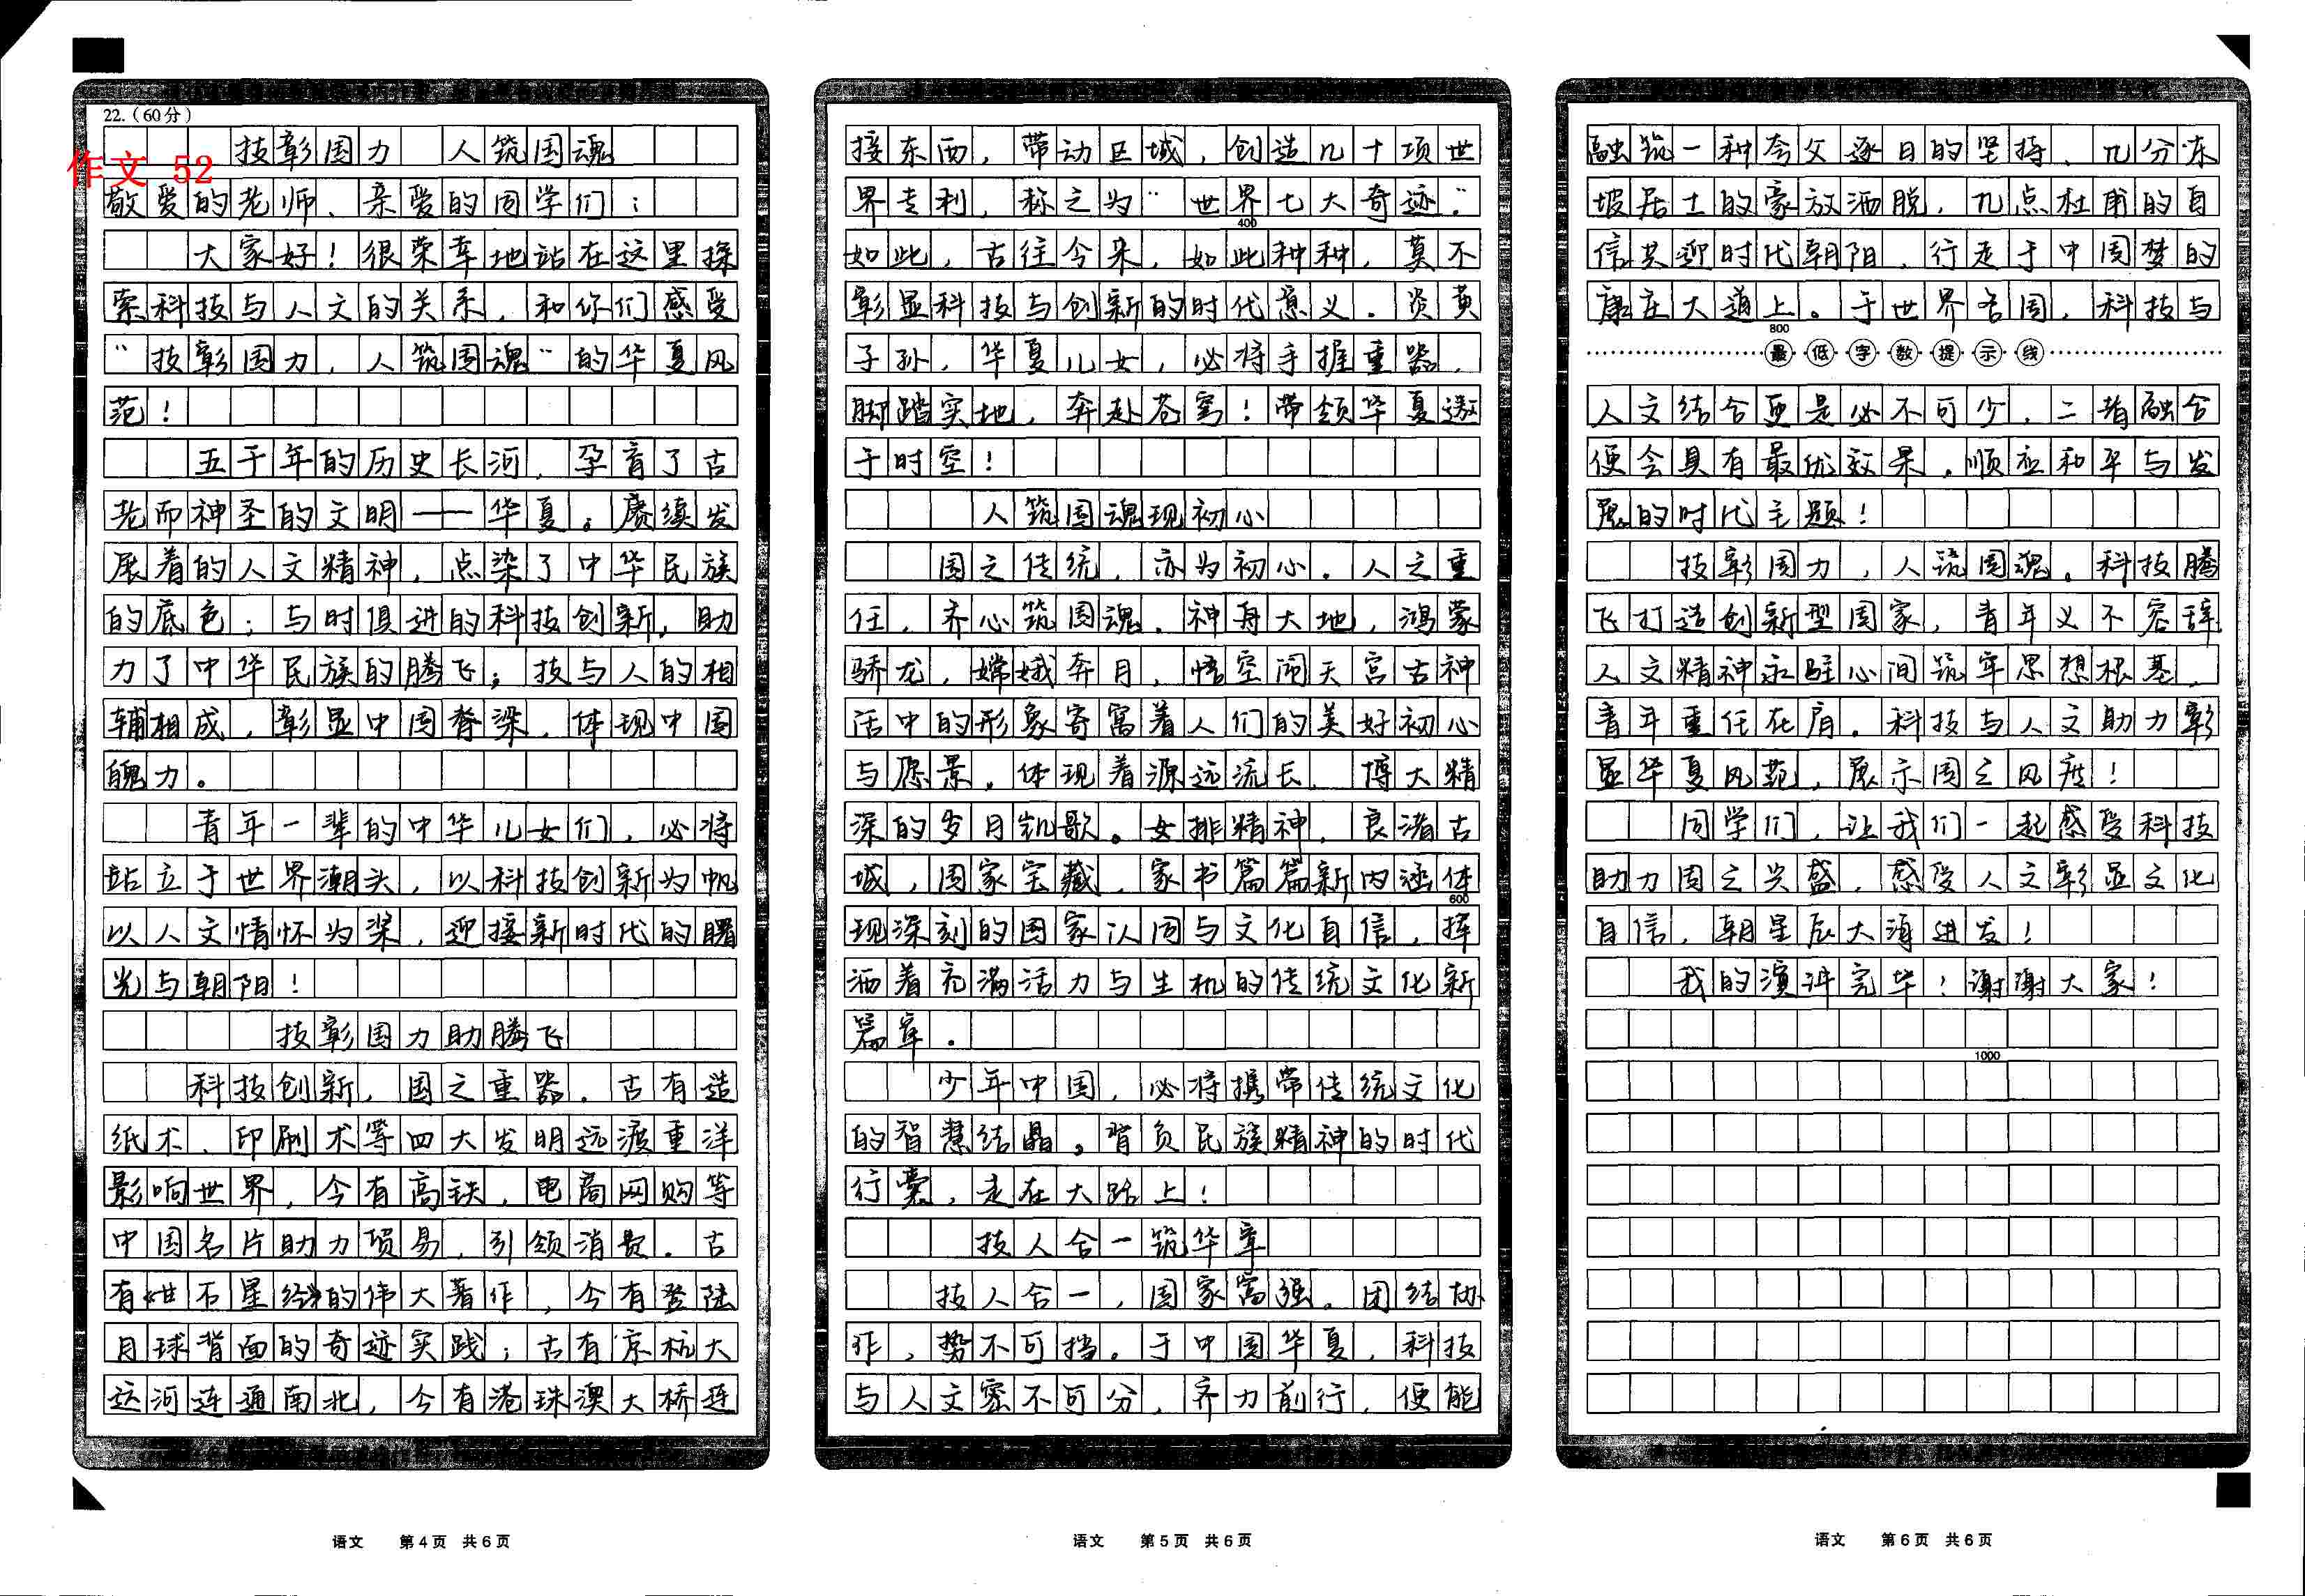 22.（60分）
技彰国力 人筑国魂
作文 52
敬爱的老师、亲爱的同学们：
大家好！很荣幸地站在这里探
索科技与人文的关系，和你们感受
“技彰国力，人筑国魂”的华夏风
范！
五千年的历史长河，孕育了古
老而神圣的文明——华夏。赓续发
展着的人文精神，点染了中华民族
的底色；与时俱进的科技创新，助
力了中华民族的腾飞；技与人的相
辅相成，彰显中国脊梁，体现中国
魄力。
青年一辈的中华儿女们，必将
站立于世界潮头，以科技创新为帆
以人文情怀为桨，迎接新时代的曙
光与朝阳！
技彰国力助腾飞
科技创新，国之重器。古有造
纸术、印刷术等四大发明远渡重洋
影响世界，今有高铁，电商网购等
中国名片助力贸易，引领消费。古
有甘石星经的伟大著作，今有登陆
月球背面的奇迹实践；古有京杭大
运河连通南北，今有港珠澳大桥连
语文 第4页 共6页
接东西，带动区域，创造几十项世
界专利，称之为“世界七大奇迹”
400
如此，古往今来，如此种种，莫不
彰显科技与创新的时代意义。炎黄
子孙，华夏儿女，必将手握重器，
脚踏实地，奔赴苍穹！带领华夏遨
于时空！
人筑国魂现初心
国之传统，亦为初心。人之重
任，齐心筑国魂。神舟大地，鸿蒙
骄龙，嫦娥奔月，悟空闹天宫古神
话中的形象寄寓着人们的美好初心
与愿景，体现着源远流长、博大精
深的岁月凯歌。女排精神，良渚古
城，国家宝藏，家书篇篇新内涵体
600
现深刻的国家认同与文化自信，挥
洒着充满活力与生机的传统文化新
篇章。
少年中国，必将携带传统文化
的智慧结晶。背负民族精神的时代
行囊，走在大路上！
技人合一筑华章
技人合一，国家富强。团结协
作，势不可挡。于中国华夏，科技
与人文密不可分，齐力前行，便能
语文 第5页 共6页
融筑一种夸父逐日的坚持、几分东
坡居士的豪放洒脱，几点杜甫的自
信共迎时代朝阳，行走于中国梦的
康庄大道上。于世界各国，科技与
800
最低字数提示线
人文结合更是必不可少，二者融合
便会具有最优效果，顺应和平与发
展的时代主题！
技彰国力，人筑国魂。科技腾
飞打造创新型国家，青年义不容辞
人文精神永驻心间筑牢思想根基，
青年重任在肩。科技与人文助力彰
显华夏风范，展示国之风度！
同学们，让我们一起感受科技
助力国之兴盛，感受人文彰显文化
自信，朝星辰大海进发！
我的演讲完毕！谢谢大家！
1000
语文 第6页 共6页